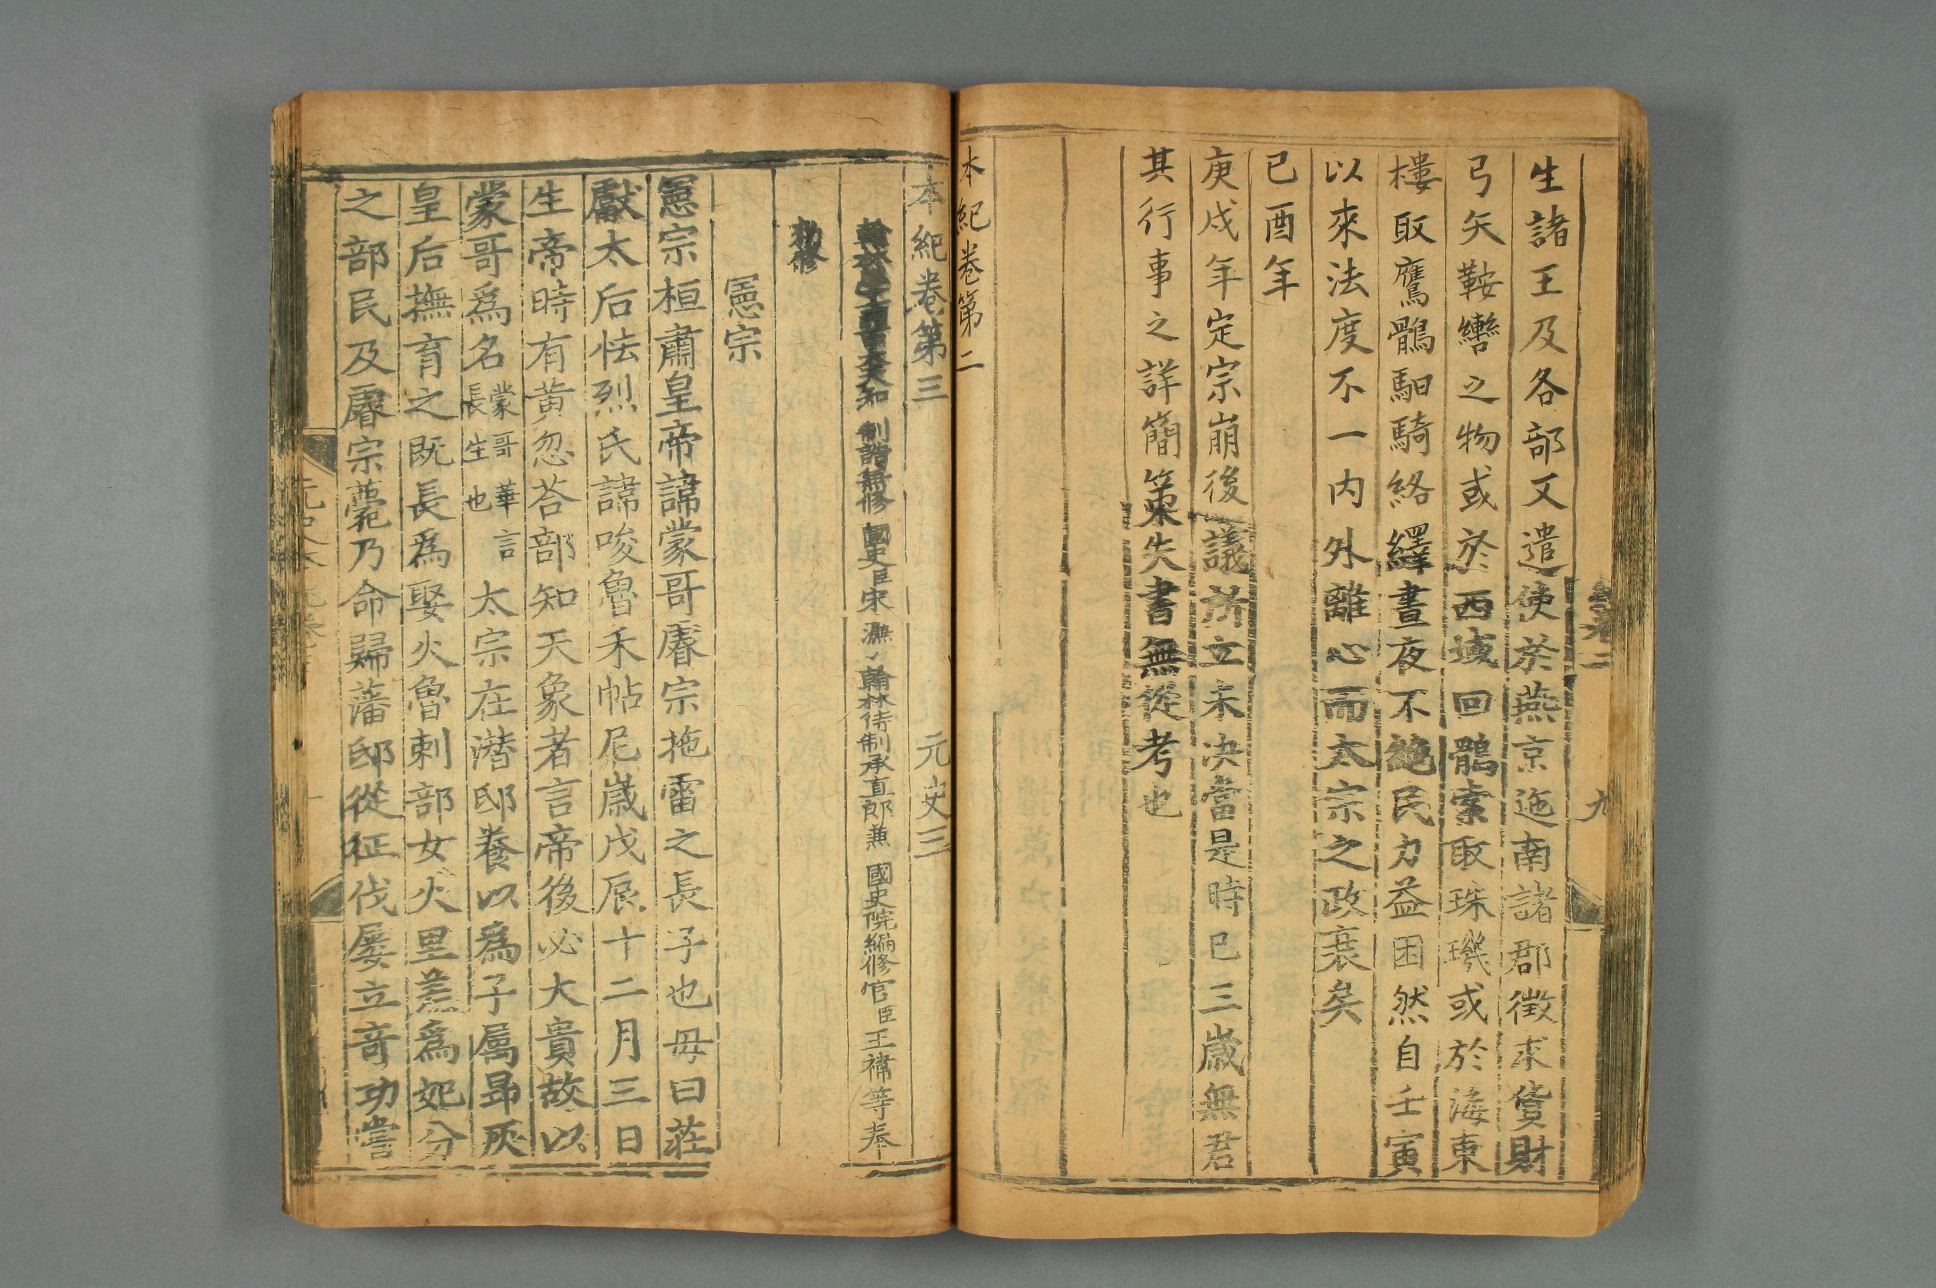 生諸王及各部又遣使於燕京迤南諸郡徵求貨財
弓矢鞍轡之物或於西域回鶻索取珠璣或於海東
樓取鷹鶻馹騎絡繹晝夜不絶民力益困然自壬寅
以來法度不一內外離心而太宗之政衰矣
已酉年
庚戌年定宗崩後議所立未决當是時已三歲無君
其行事之詳簡策失書無從考也
本紀卷第二
卷二
九
本紀卷第三 元史三
翰林學士亞中大夫知制誥兼修國史臣宋濂翰林待制承直郎兼國史院編修官臣王褘等奉
勑修
憲宗
憲宗桓肅皇帝諱蒙哥睿宗拖雷之長子也母曰莊
獻太后怯烈氏諱唆魯禾帖尼歲戊辰十二月三日
生帝時有黃忽荅部知天象者言帝後必大貴故以
蒙哥爲名蒙哥華言長生也太宗在潛邸養以爲子屬昻灰
皇后撫育之既長爲娶火魯剌部女火里差爲妃分
之部民及睿宗薨乃命歸藩邸從征伐屢立奇功嘗